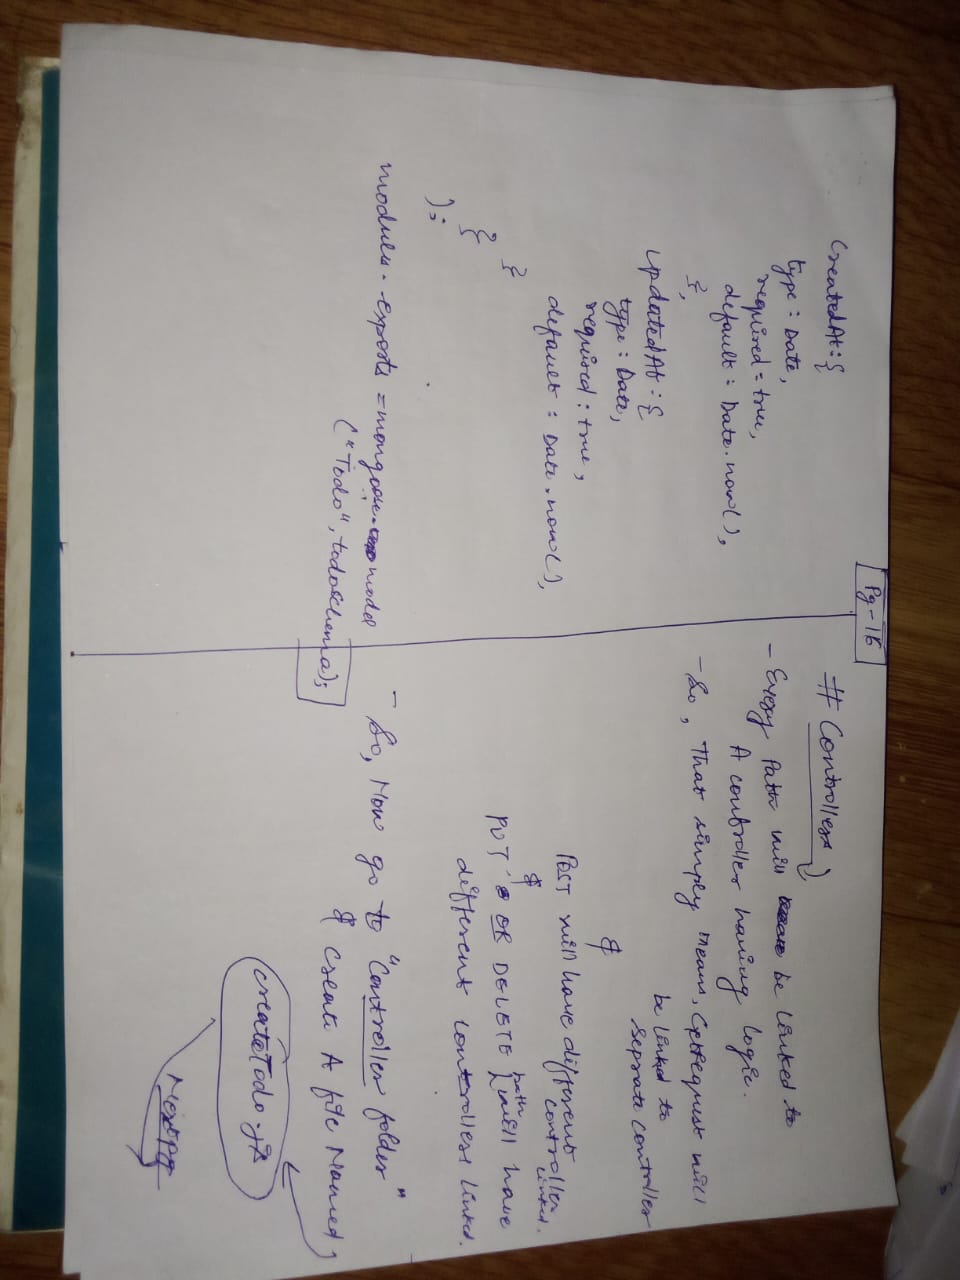 Pg-16
createdAt: {
type: Date,
required = true,
default: Date.now(),
},
updatedAt: {
type: Date,
required: true,
default: Date.now(),
}
}
);
module.exports = mongoose.model
("Todo", todoSchema);
# Controllers
- Every Path will be linked to
A controller having logic.
- So, That simply means, Get Request will
be linked to
Seprate controller
&
POST will have different
controller
linked.
&
PUT OR DELETE path will have
different controllers linked.
- So, Now go to "Controller folder"
& create A file Named
createTodo.js
Next pg